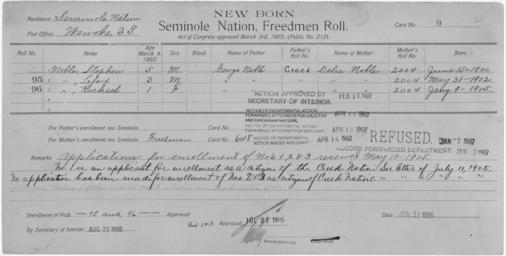 NEW BORN
Residence Seminole Nation
Seminole Nation, Freedmen Roll. Card No. 9
Post Office Wewoka, I.T.
Act of Congress approved March 3rd, 1905, Public No. 212.
Roll No. Name Age March 4, 1905 Sex. Blood. Name of Father Father's Roll No. Name of Mother Mother's Roll No. Born.
Nobles, Stephen 5 M George Noble Creek Delia Nobles 2004 June 15-1900
95 3 M " " " " 2004 May 31-1902
96 " Rachael 1 F " " 2004 Jany 9-1905.
"ACTION APPROVED BY FEB 19 1907
SECRETARY OF INTERIOR.
NOTICE OF DEPARTMENTAL ACTION
FORWARDED ATTORNEYS FOR CHOCTAW
AND CHICKASAW NATIONS. APR 1907
NOTICE OF DEPARTMENTAL ACTION
FORWARDED ATTORNEY FOR APPLICANT. APR 1907
NOTICE OF DEPARTMENTAL ACTION
MAILED APPLICANT. APR 1907
REFUSED. JAN 7 1907
RECORD FORWARDED DEPARTMENT. 1907
For Father's enrollment see Seminole
For Mother's enrollment see Seminole Freedman 645
Remarks Applications for enrollment of Nos 1, 2 & 3 received May 10-1905.
No 1 is an applicant for enrollment as a citizen of the Creek Nation. See letter of July 11, 1905.
No application has been made for enrollment of Nos 2 & 3 as citizens of Creek Nation. " " " " "
Enrollment of Nos 95 and 96 Approved Nos 2 & 3 Approved JUL 27 1905 DATE JUN 21 1905
By Secretary of Interior AUG 21 1905